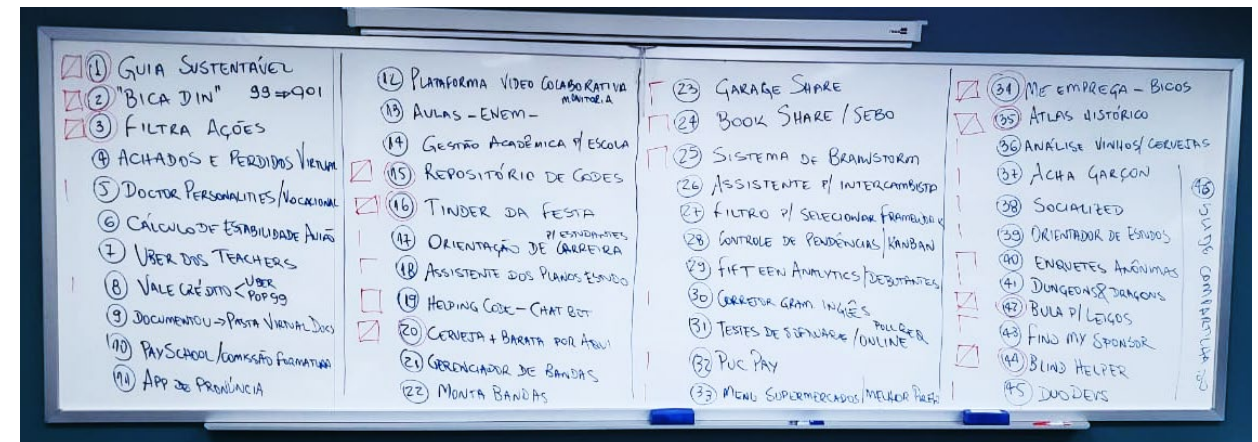 1 GUIA SUSTENTÁVEL
2 "BICA DIN" 99⇒901
3 FILTRA AÇÕES
4 ACHADOS E PERDIDOS VIRTUAL
5 DOCTOR PERSONALITIES/VOCACIONAL
6 CÁLCULO DE ESTABILIDADE AVIÃO
7 UBER DOS TEACHERS
8 VALE CRÉDITO < UBER POP99
9 DOCUMENTOU → PASTA VIRTUAL DOCS
10 PAYSCHOOL/COMISSÃO FORMATURA
11 APP DE PRONÚNCIA
12 PLATAFORMA VIDEO COLABORATIVA MONITORIA
13 AULAS - ENEM -
14 GESTÃO ACADÊMICA P/ ESCOLA
15 REPOSITÓRIO DE CODES
16 TINDER DA FESTA
17 ORIENTAÇÃO DE CARREIRA P/ ESTUDANTES
18 ASSISTENTE DOS PLANOS ESTUDO
19 HELPING CODE - CHAT BOT
20 CERVEJA + BARATA POR AQUI
21 GERENCIADOR DE BANDAS
22 MONTA BANDAS
23 GARAGE SHARE
24 BOOK SHARE / SEBO
25 SISTEMA DE BRAINSTORM
26 ASSISTENTE P/ INTERCAMBISTA
27 FILTRO P/ SELECIONAR FRAMEWORK
28 CONTROLE DE PENDÊNCIAS/KANBAN
29 FIFTEEN ANALYTICS/DEBUTANTES
30 CORRETOR GRAM INGLÊS
31 TESTES DE SOFTWARE/ONLINE
32 PUC PAY
33 MENU SUPERMERCADOS/MELHOR PREÇO
34 ME EMPREGA - BICOS
35 ATLAS HISTÓRICO
36 ANÁLISE VINHOS/CERVEJAS
37 ACHA GARÇON
38 SOCIALIZED
39 ORIENTADOR DE ESTUDOS
40 ENQUETES ANÔNIMAS
41 DUNGEONS & DRAGONS
42 BULA P/ LEIGOS
43 FIND MY SPONSOR
44 BLIND HELPER
45 DUODEVS
46